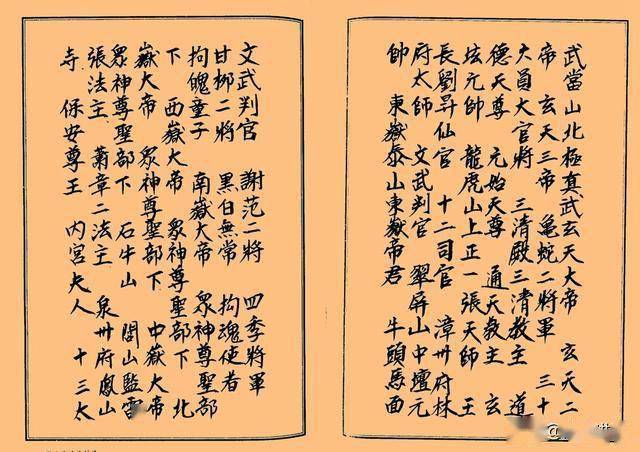 武當山北極真武玄天大帝 玄天二
帝 玄天三帝 龜蛇二將軍 三十
六員大官將 三清殿三清教主 道
德天尊 元始天尊 通天教主 玄
坛元帥 龍虎山上正一張天師 王
長劉昇仙官 十二司官 漳州府林
府太師 文武判官 翠屏山中壇元
帥 東嶽泰山東嶽帝君 牛頭馬面
文武判官 謝范二將 四季將軍
甘柳二將 黑白無常 拘魂使者
拘魄童子 南嶽大帝 眾神尊聖部
下 西嶽大帝 眾神尊聖部下 北
嶽大帝 眾神尊聖部下 中嶽大帝
眾神尊聖部下 石牛山 閭山監雪
張法主 蕭章二法主 泉州府鳳山
寺 保安尊王 內宮夫人 十三太